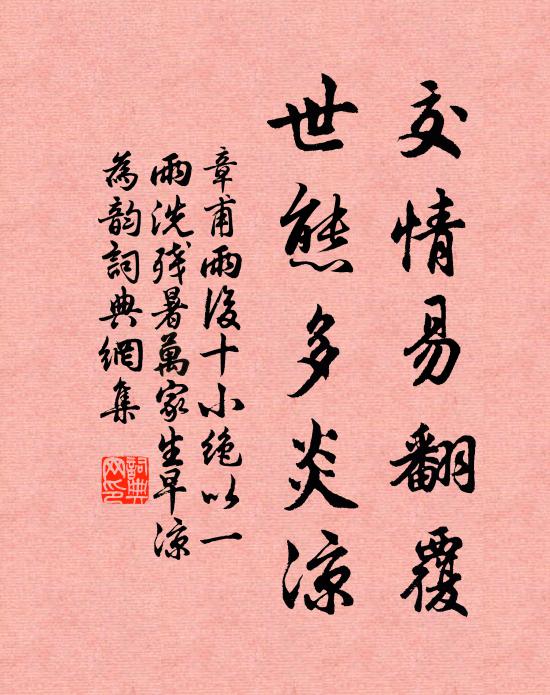 交情易翻覆
世態多炎涼
章甫雨後十小絕以一
雨洗残暑萬家生早凉
為韵詞典網集
詞典网印